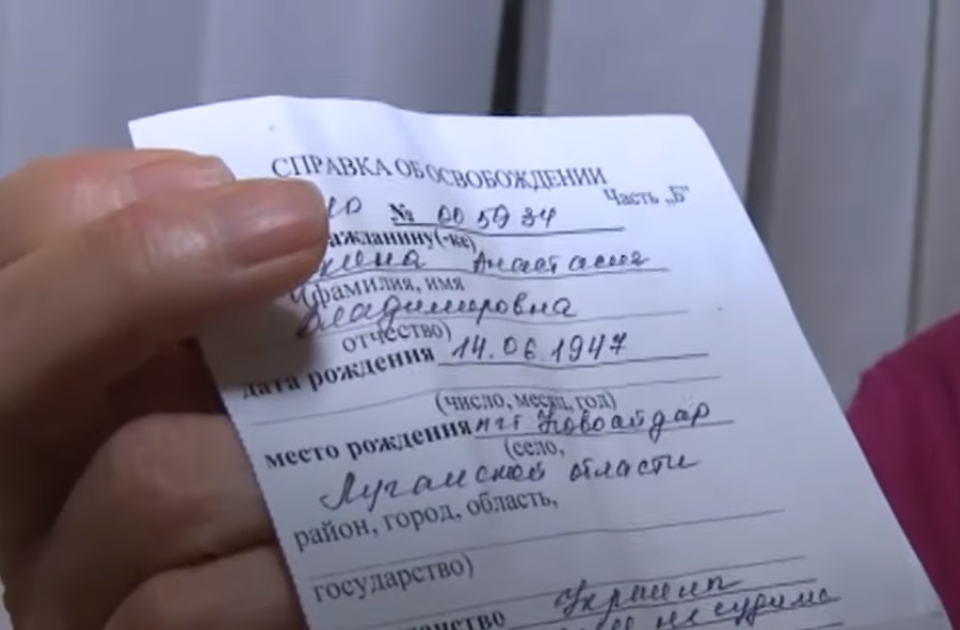 СПРАВКА ОБ ОСВОБОЖДЕНИИ
Часть „Б"
№ 005934
ажданину(-ке)
Анастасия
(фамилия, имя
Владимировна
отчество)
дата рождения 14.06.1947
(число, месяц, год)
место рождения пгт Новоайдар
(село,
Луганской области
район, город, область,
государство)
не судима